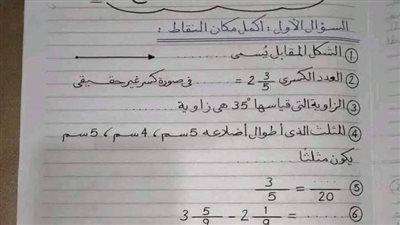 السؤال الأول : أكمل مكان النقاط :
① الشكل المقابل يُسمى ..........
② العدد الكسرى 2 3/5 = .......... فى صورة كسر غير حقيقى
③ الزاوية التى قياسها 35° هى زاوية ..........
④ المثلث الذى أطوال أضلاعه 5سم ، 4سم ، 5سم
يكون مثلثًا ..........
⑤ 3/5 = ....../20
⑥ 3 5/9 - 2 1/9 = ..........